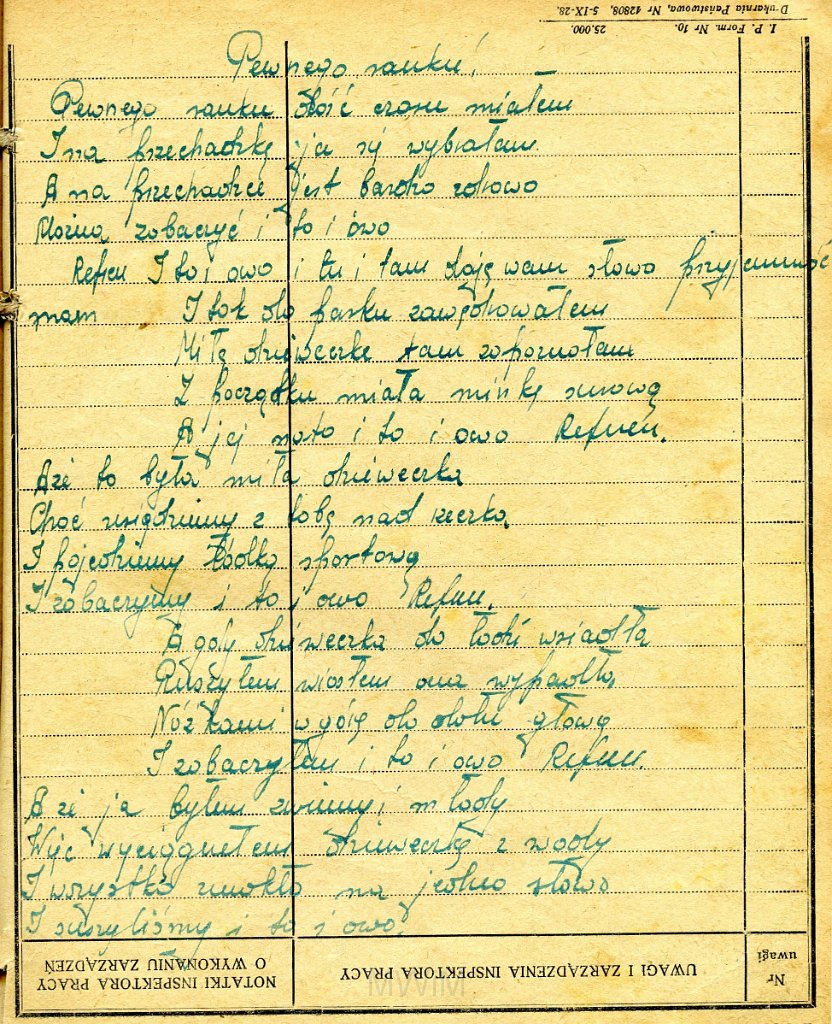 I. P. Form. Nr 10. 25.000.
Drukarnia Państwowa, Nr 12808, 5-IX-28.
Pewnego ranku!
Pewnego ranku dość czasu miałem
I na przechadzkę ja się wybrałem
A na przechadzce jest bardzo zdrowo
Można zobaczyć i to i owo
Refren I to i owo i tu i tam daję wam słowo przyjemność
mam I tak do parku zawędrowałem
Miłą dzieweczkę tam zapoznałem
Z początku miała minkę surową
A jej na to i to i owo Refren.
A że to była miła dzieweczka
Choć usiędziemy z tobą nad rzeczką
I pojedziemy łódką sportową
I zobaczymy i to i owo Refren.
A gdy dzieweczka do łodzi wsiadła
Ruszyłem wiosłem ona wypadła
Nóżkami w górę do dołu głową
I zobaczyłem i to i owo Refren.
A że ja byłem zwinny i młody
Więc wyciągnełem dzieweczkę z wody
I wszystko zmokło na jedno słowo
I suszyliśmy i to i owo
Nr uwagi
UWAGI I ZARZĄDZENIA INSPEKTORA PRACY
NOTATKI INSPEKTORA PRACY
O WYKONANIU ZARZĄDZEŃ